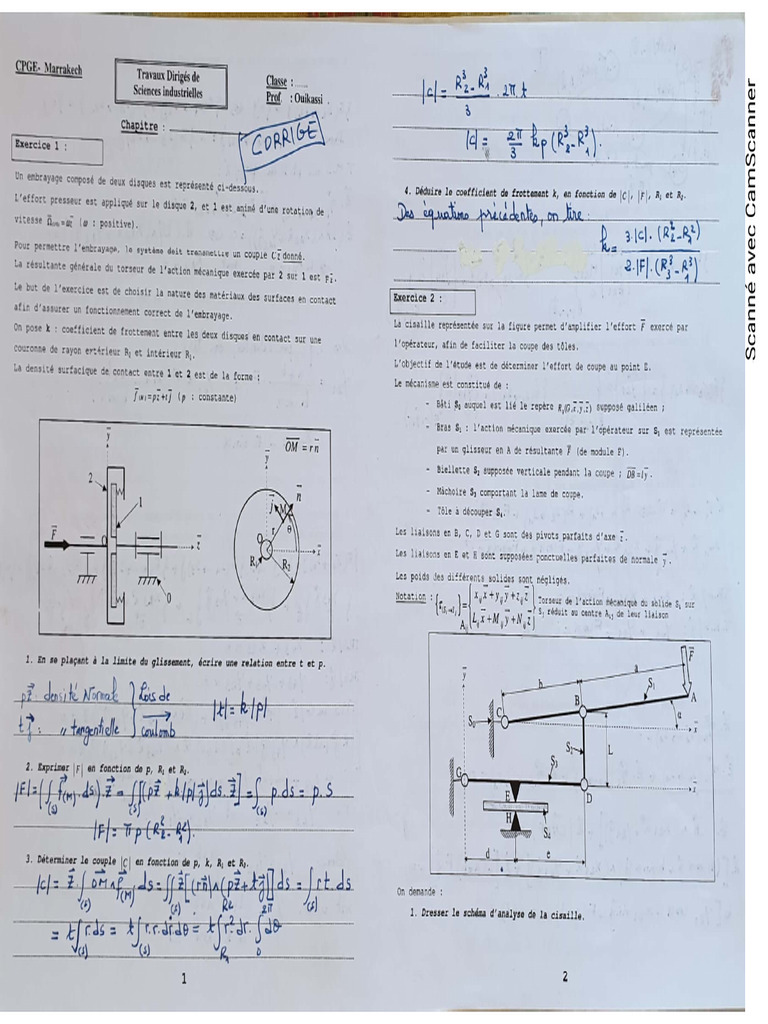 CPGE- Marrakech
Travaux Dirigés de
Sciences industrielles
Classe : .....
Prof : Ouikassi
Chapitre :
CORRIGÉ
Exercice 1 :
Un embrayage composé de deux disques est représenté ci-dessous.
L'effort presseur est appliqué sur le disque 2, et 1 est animé d'une rotation de
vitesse (ω : positive).
Pour permettre l'embrayage, le système doit transmettre un couple C z donné.
La résultante générale du torseur de l'action mécanique exercée par 2 sur 1 est F z.
Le but de l'exercice est de choisir la nature des matériaux des surfaces en contact
afin d'assurer un fonctionnement correct de l'embrayage.
On pose k : coefficient de frottement entre les deux disques en contact sur une
couronne de rayon extérieur R₂ et intérieur R₁.
La densité surfacique de contact entre 1 et 2 est de la forme :
f(M) = p z + t j (p : constante)
OM = r n
y
2
1
F
O
z
0
y
n
j
M
O
r
θ
x
R₁
R₂
1. En se plaçant à la limite du glissement, écrire une relation entre t et p.
p z : densité Normale } Lois de
t j : " tangentielle } coulomb
|t| = k |p|
2. Exprimer |F| en fonction de p, R₁ et R₂.
|F| = (∫(S) f(M).ds).z = ∬(S) [(p z + k|p| j) ds. z] = ∫(S) p.ds = p.S
|F| = π p (R₂² - R₁²).
3. Déterminer le couple |C| en fonction de p, k, R₁ et R₂.
|C| = z ∫(S) OM ∧ f(M) ds = ∬(S) z [(r n) ∧ (p z + t j)] ds = ∫(S) r t. ds
= t ∫(S) r.ds = t ∫(S) r.r.dr dθ = t ∫R₁^R₂ r² dr. ∫0^2π dθ
1
|C| = (R₂³ - R₁³)/3 . 2π t
|C| = 2π/3 k p (R₂³ - R₁³).
4. Déduire le coefficient de frottement k, en fonction de |C|, |F|, R₁ et R₂.
Des équations précédentes, on tire :
k = 3.|C|.(R₂² - R₁²) / 2.|F|.(R₃³ - R₁³)
Exercice 2 :
La cisaille représentée sur la figure permet d'amplifier l'effort F exercé par
l'opérateur, afin de faciliter la coupe des tôles.
L'objectif de l'étude est de déterminer l'effort de coupe au point E.
Le mécanisme est constitué de :
- Bâti S₀ auquel est lié le repère R₀(G, x, y, z) supposé galiléen ;
- Bras S₁ : l'action mécanique exercée par l'opérateur sur S₁ est représentée
par un glisseur en A de résultante F (de module F).
- Biellette S₂ supposée verticale pendant la coupe ; DB = l y.
- Mâchoire S₃ comportant la lame de coupe.
- Tôle à découper S₄.
Les liaisons en B, C, D et G sont des pivots parfaits d'axe z.
Les liaisons en E et H sont supposées ponctuelles parfaites de normale y.
Les poids des différents solides sont négligés.
Notation : {τ(Si→Sj)} = Aij {Xij x + Yij y + Zij z Lij x + Mij y + Nij z} Torseur de l'action mécanique du solide Si sur
Sj réduit au centre Aij de leur liaison
F
a
b
y
S₁
B
A
C
S₀
α
x
S₂
L
G
S₃
D
x
E
H
S₄
d
e
On demande :
1. Dresser le schéma d'analyse de la cisaille.
2
Scanné avec CamScanner